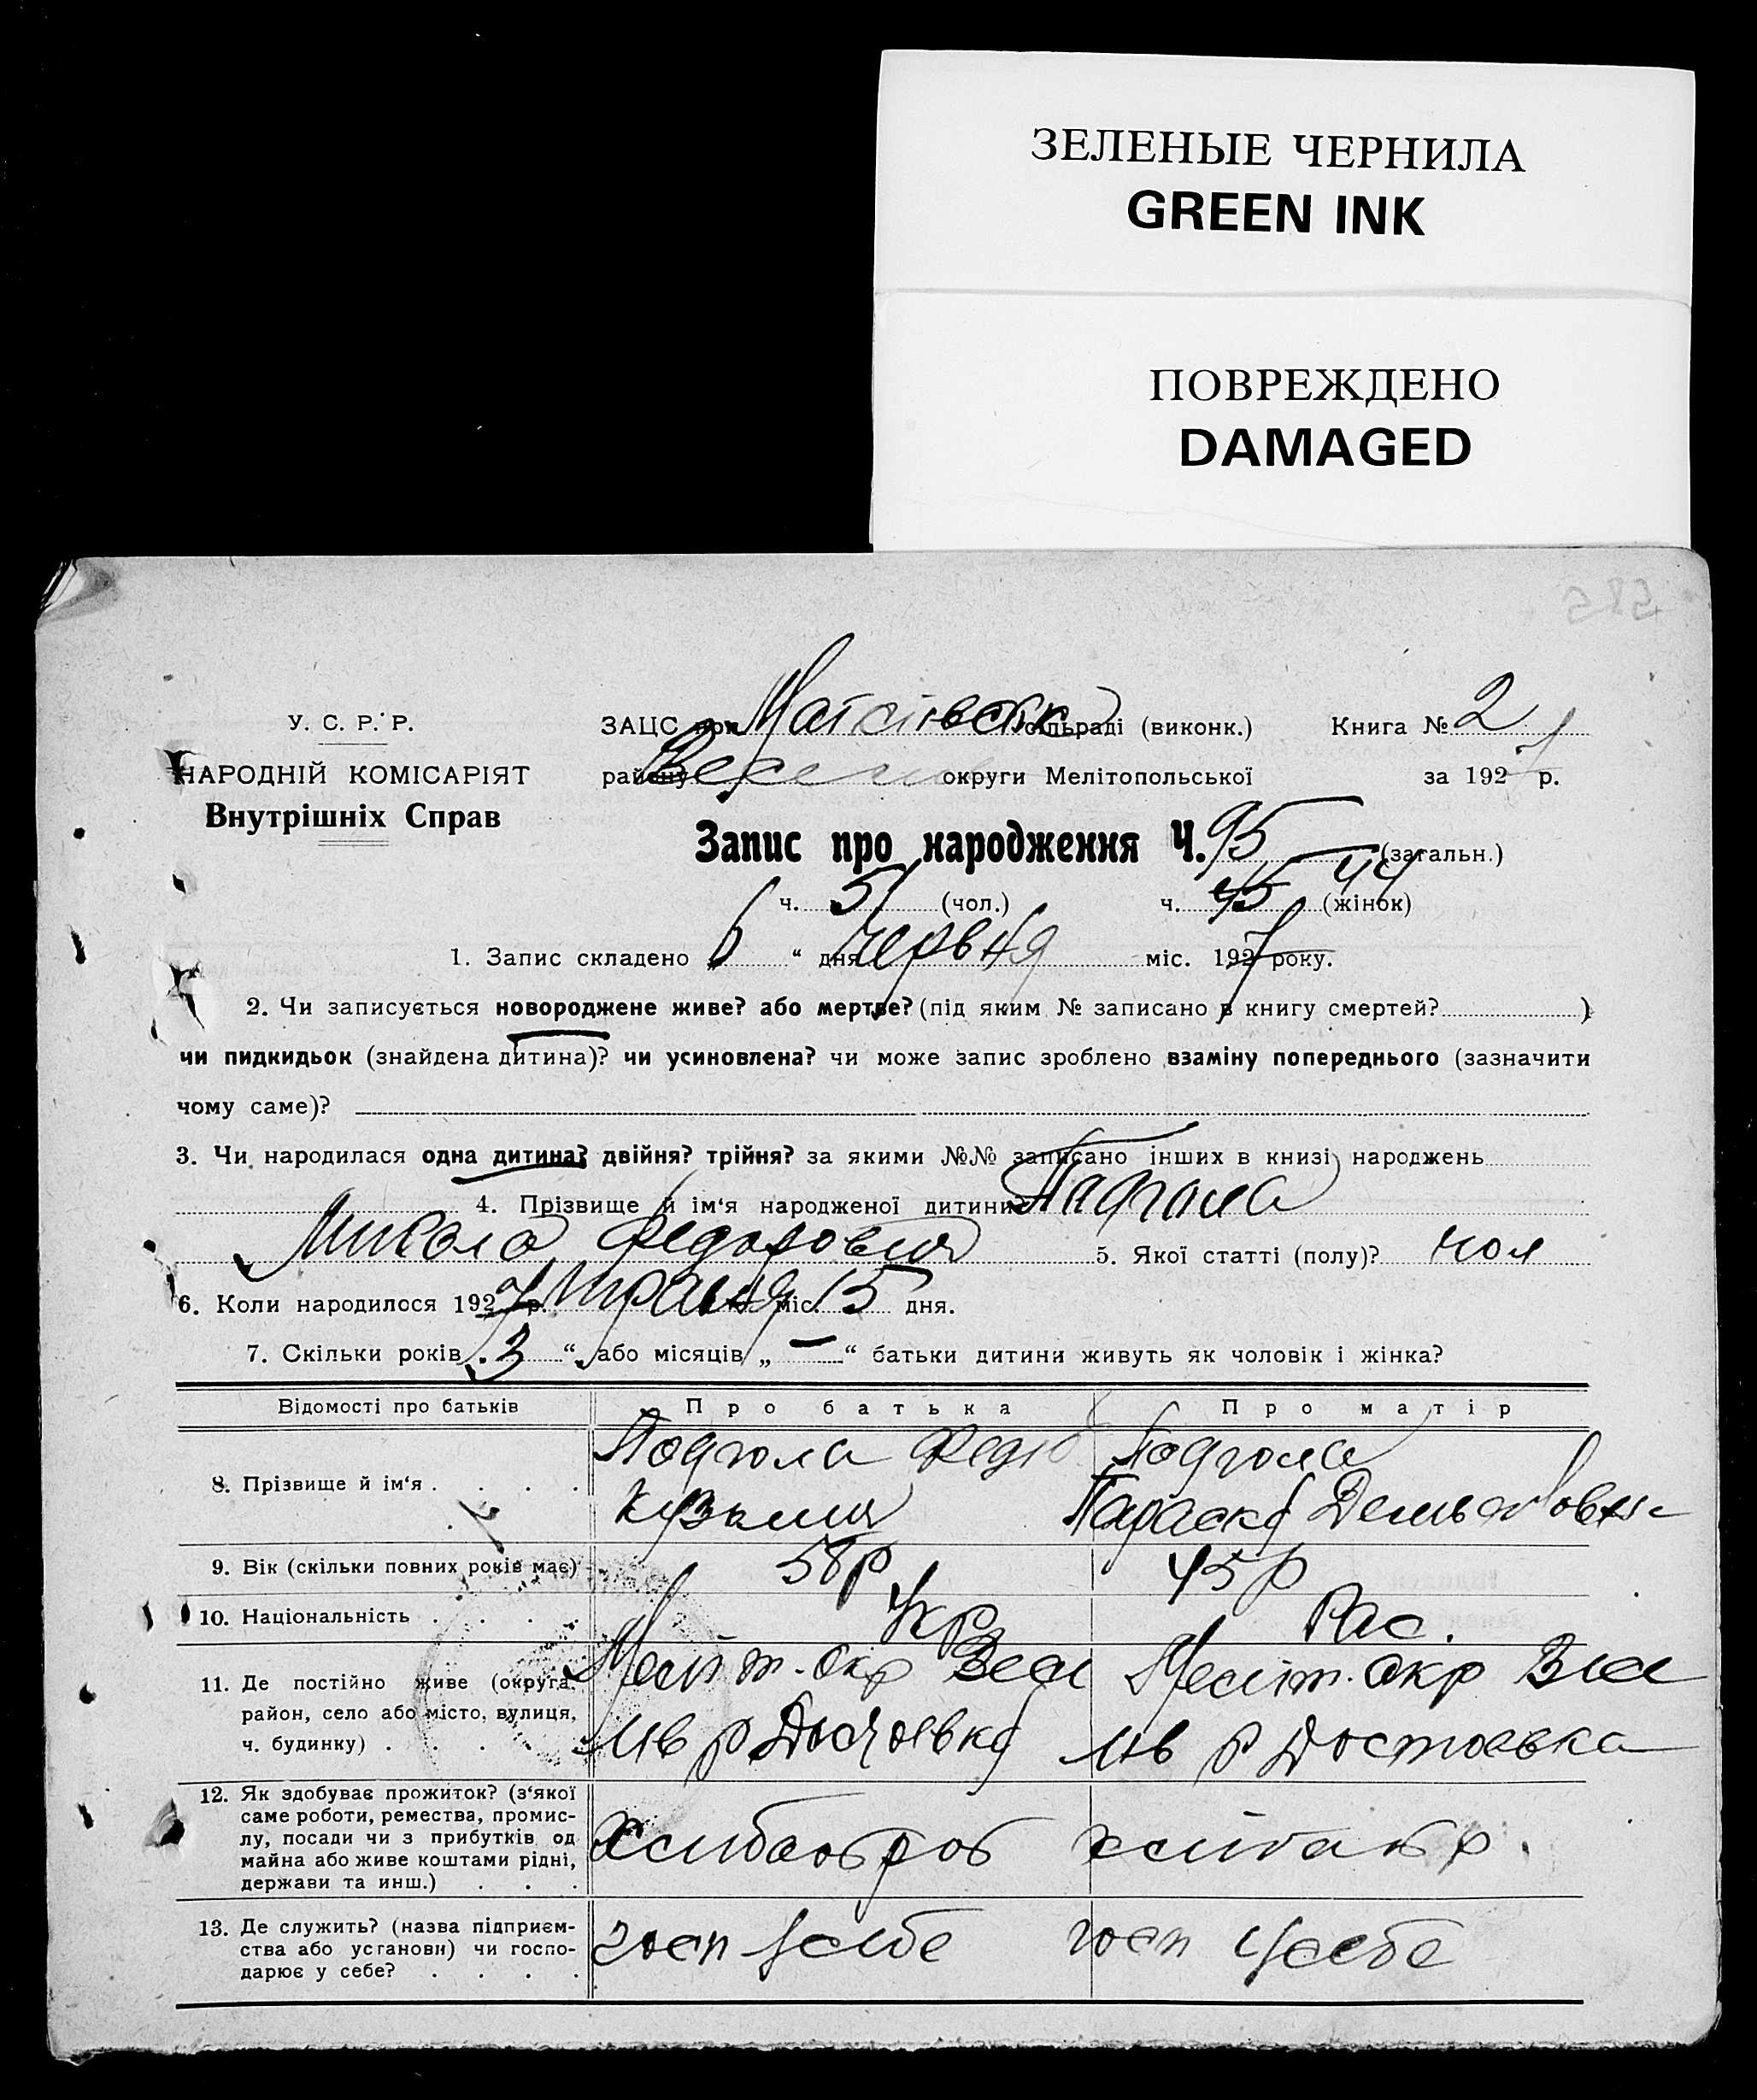 ЗЕЛЕНЫЕ ЧЕРНИЛА
GREEN INK
ПОВРЕЖДЕНО
DAMAGED
585
У. С. Р. Р.
НАРОДНІЙ КОМІСАРІЯТ
Внутрішніх Справ
ЗАЦС при сільраді (виконк.) Книга № 2
району округи Мелітопольської за 1927 р.
Запис про народження Ч. 95 (загальн.)
ч. 51 (чол.) ч. 45 44 (жінок)
1. Запис складено „6“ дня червня міс. 1927 року.
2. Чи записується новороджене живе? або мертве? (під яким № записано в книгу смертей? )
чи пидкидьок (знайдена дитина)? чи усиновлена? чи може запис зроблено взаміну попереднього (зазначити
чому саме)?
3. Чи народилася одна дитина? двійня? трійня? за якими №№ записано інших в книзі народжень
4. Прізвище й ім'я народженої дитини
Микола Федорович 5. Якої статті (полу)? чол
6. Коли народилося 1927 р. травня міс. 15 дня.
7. Скільки років „3“ або місяців „—“ батьки дитини живуть як чоловік і жінка?
Відомості про батьків Про батька Про матір
8. Прізвище й ім'я . . . .
9. Вік (скільки повних років має) 58 р 45 р
10. Національність . . . . Укр Рос.
11. Де постійно живе (округа, Меліт. окр Меліт. окр
район, село або місто, вулиця,
ч. будинку) . . . . р р Достоевка
12. Як здобуває прожиток? (з'якої
саме роботи, ремества, промис-
лу, посади чи з прибутків од
майна або живе коштами рідні,
держави та инш.) . . . хлібороб
13. Де служить? (назва підприєм-
ства або установи) чи госпо- госп у себе госп у себе
дарює у себе? . . . .